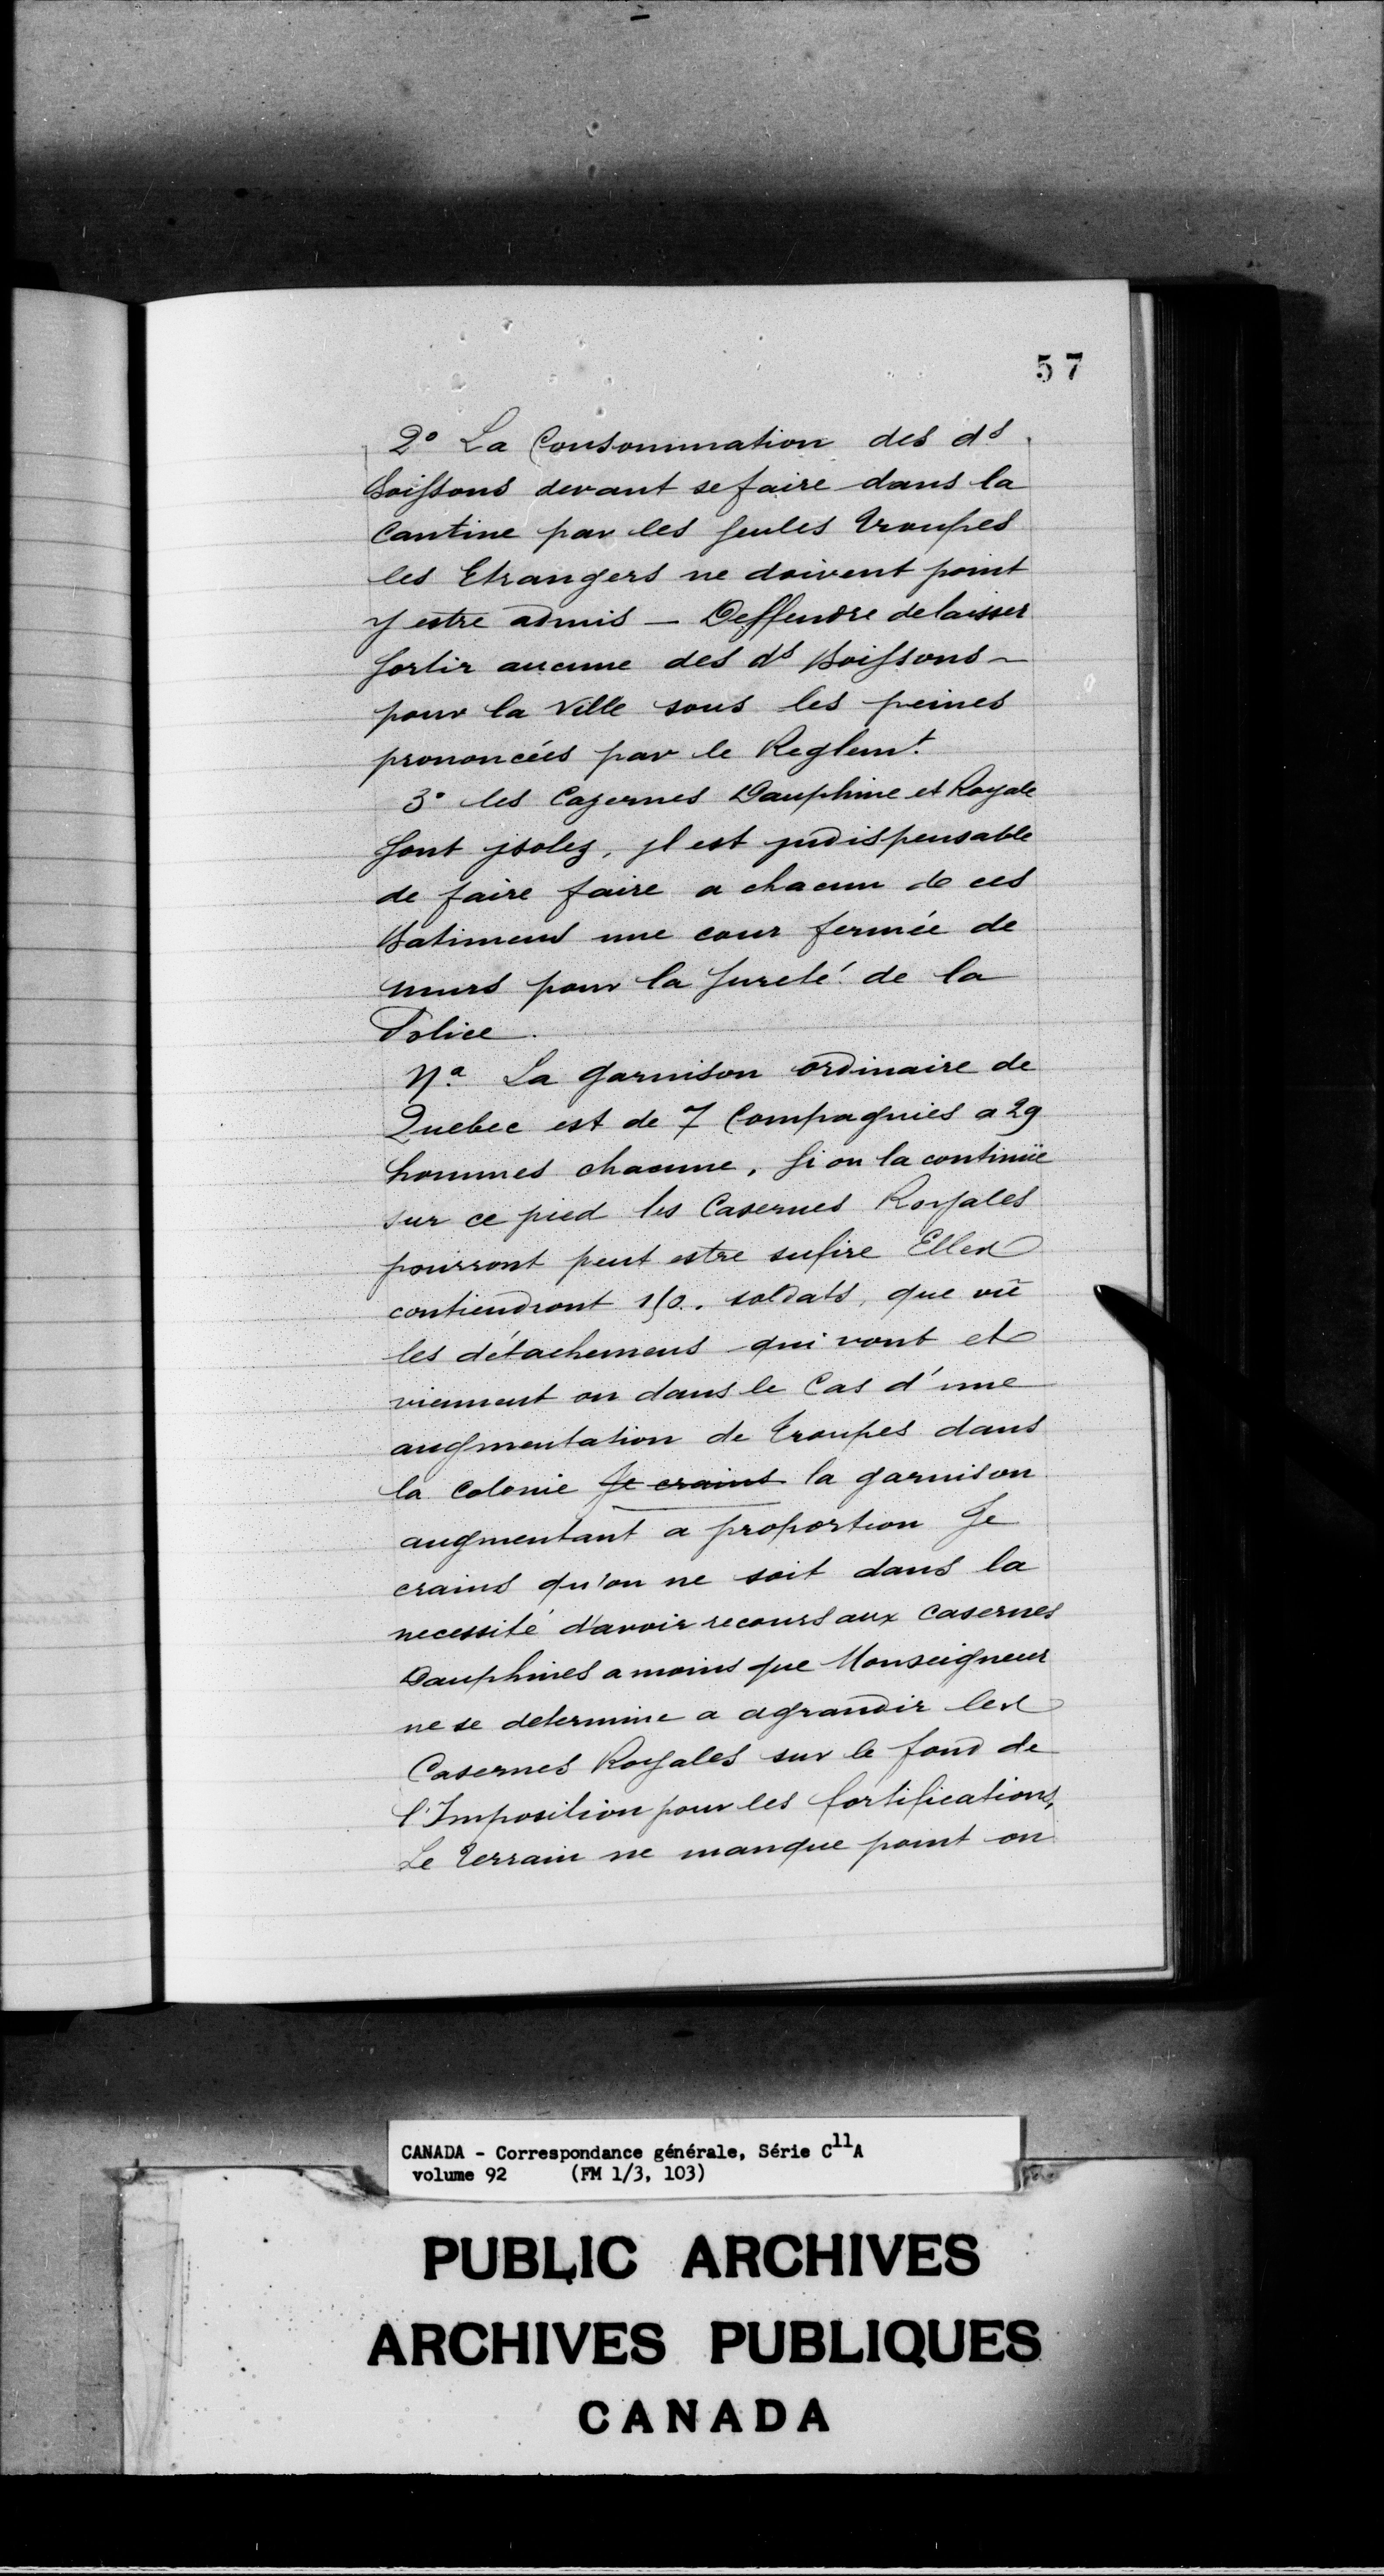 57
2º La Consommation des ds
Boissons devant se faire dans la
Cantine par les seules Troupes
les Etrangers ne doivent point
y estre admis — Deffendre de laisser
sortir aucune des ds Boissons —
pour la Ville sous les peines
prononcées par le Reglemt.
3º les Cazernes Dauphine et Royale
sont jsolez, jl est jndispensable
de faire faire a chacun de ces
Batimens une cour fermée de
murs pour la sureté de la
Police.
Na. La garnison ordinaire de
Quebec est de 7 Compagnies a 29
hommes chacune, si on la continüe
sur ce pied les Casernes Royales
pourront peut estre sufire Elles
contiendront soldats, que vû
les détachemens qui vont et
viennent ou dans le Cas d'une
augmentation de Troupes dans
la Colonie Je crains la garnison
augmentant a proportion Je
crains qu'on ne soit dans la
necessité d'avoir recours aux Casernes
Dauphines a moins que Monseigneur
ne se determine a agrandir les
Casernes Royales sur le fond de
l'Imposition pour les fortifications,
Le Terrain ne manque point on
CANADA - Correspondance générale, Série C11A
volume 92 (FM 1/3, 103)
PUBLIC ARCHIVES
ARCHIVES PUBLIQUES
CANADA